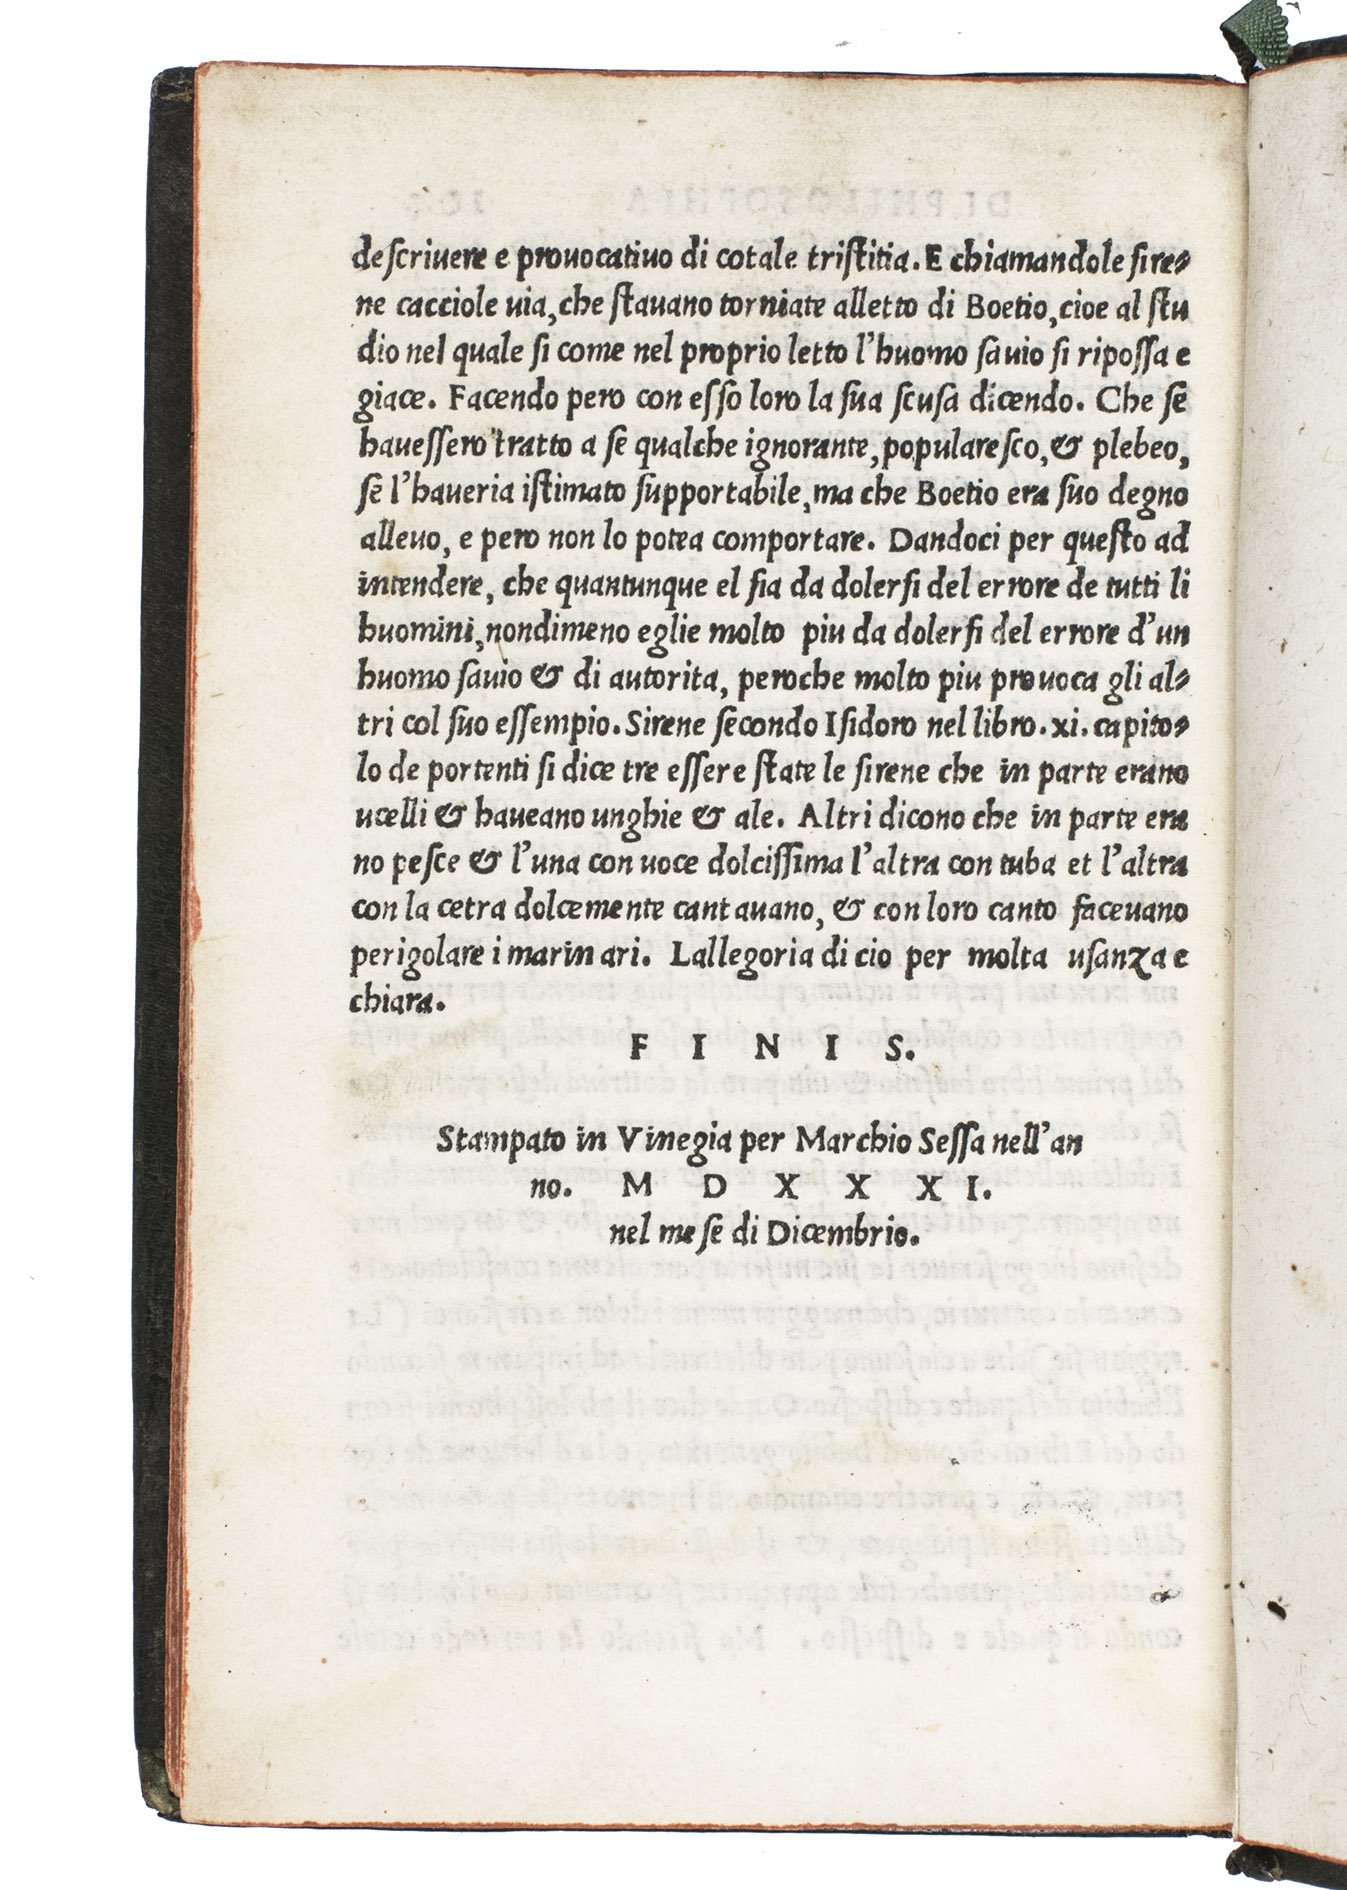 descriuere e prouocatiuo di cotale tristitia. E chiamandole sire-
ne cacciole uia, che stauano torniate alletto di Boetio, cioe al stu
dio nel quale si come nel proprio letto l'huomo sauio si ripossa e
giace. Facendo pero con esso loro la sua scusa dicendo. Che se
hauessero tratto a se qualche ignorante, popularesco, & plebeo,
se l'haueria istimato supportabile, ma che Boetio era suo degno
alleuo, e pero non lo potea comportare. Dandoci per questo ad
intendere, che quantunque el sia da dolersi del errore de tutti li
huomini, nondimeno eglie molto piu da dolersi del errore d'un
huomo sauio & di autorita, peroche molto piu prouoca gli al-
tri col suo essempio. Sirene secondo Isidoro nel libro. xi. capito-
lo de portenti si dice tre essere state le sirene che in parte erano
ucelli & haueano unghie & ale. Altri dicono che in parte era
no pesce & l'una con uoce dolcissima l'altra con tuba et l'altra
con la cetra dolcemente cantauano, & con loro canto faceuano
perigolare i marinari. Lallegoria di cio per molta usanza e
chiara.
F I N I S.
Stampato in Vinegia per Marchio Sessa nell'an
no. M D X X X I.
nel mese di Dicembrio.